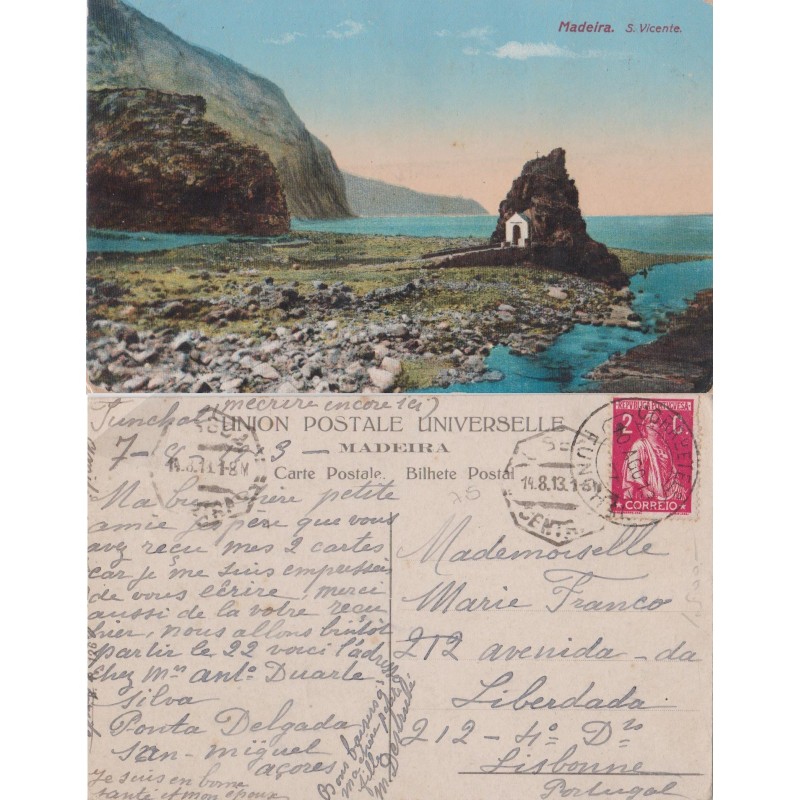 Madeira. S. Vicente.
Funchal (mecrire encore ici)
UNION POSTALE UNIVERSELLE
7-8-1913 — MADEIRA —
Carte Postale. Bilhete Postal
REPVBLICA PORTVGVESA
2 C.
CORREIO
14.8.13.1-8M
14.8.13.1-8M
CENTRAL
FUNCHAL
AGO
Ma bien chère petite
amie j'espère que vous
avez reçu mes 2 cartes
car je me suis empressée
de vous écrire, merci
aussi de la votre reçu
hier, nous allons bientôt
partir le 22 voici l'adresse
chez Mrs antº Duarte
Silva
Ponta Delgada
San-miguel
açores
Je suis en bonne
santé et mon époux
Bons baisers
ma chère petite
fille
Mademoiselle
Marie Franco
212 avenida-da
Liberdada
212-4º Dto
Lisbonne
Portugal
75